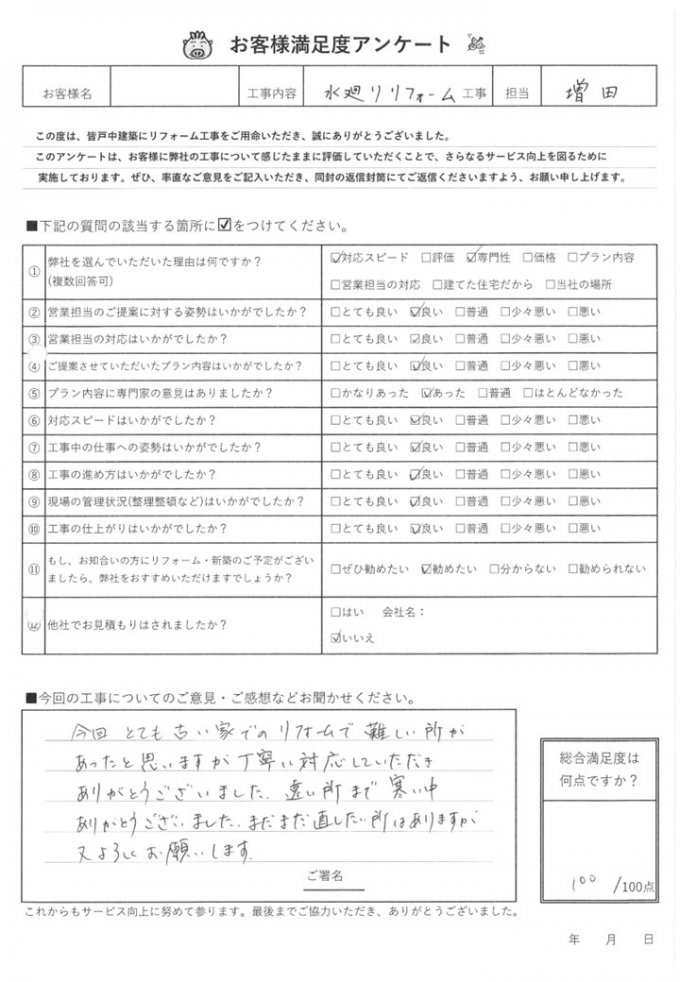 お客様満足度アンケート
お客様名 工事内容 水廻りリフォーム 工事 担当 増田
この度は、皆戸中建築にリフォーム工事をご用命いただき、誠にありがとうございました。
このアンケートは、お客様に弊社の工事について感じたままに評価していただくことで、さらなるサービス向上を図るために
実施しております。ぜひ、率直なご意見をご記入いただき、同封の返信封筒にてご返信くださいますよう、お願い申し上げます。
■下記の質問の該当する箇所に☑をつけてください。
① 弊社を選んでいただいた理由は何ですか？ ☑対応スピード □評価 ☑専門性 □価格 □プラン内容
(複数回答可) □営業担当の対応 □建てた住宅だから □当社の場所
② 営業担当のご提案に対する姿勢はいかがでしたか？ □とても良い ☑良い □普通 □少々悪い □悪い
③ 営業担当の対応はいかがでしたか？ □とても良い ☑良い □普通 □少々悪い □悪い
④ ご提案させていただいたプラン内容はいかがでしたか？ □とても良い ☑良い □普通 □少々悪い □悪い
⑤ プラン内容に専門家の意見はありましたか？ □かなりあった ☑あった □普通 □ほとんどなかった
⑥ 対応スピードはいかがでしたか？ □とても良い ☑良い □普通 □少々悪い □悪い
⑦ 工事中の仕事への姿勢はいかがでしたか？ □とても良い ☑良い □普通 □少々悪い □悪い
⑧ 工事の進め方はいかがでしたか？ □とても良い ☑良い □普通 □少々悪い □悪い
⑨ 現場の管理状況(整理整頓など)はいかがでしたか？ □とても良い ☑良い □普通 □少々悪い □悪い
⑩ 工事の仕上がりはいかがでしたか？ □とても良い ☑良い □普通 □少々悪い □悪い
⑪ もし、お知合いの方にリフォーム・新築のご予定がござい
ましたら、弊社をおすすめいただけますでしょうか？ □ぜひ勧めたい ☑勧めたい □分からない □勧められない
⑫ 他社でお見積もりはされましたか？ □はい 会社名：
☑いいえ
■今回の工事についてのご意見・ご感想などお聞かせください。
今回 とても古い家でのリフォームで難しい所が
あったと思いますが丁寧に対応していただき
ありがとうございました。遠い所まで寒い中
ありがとうございました。まだまだ直したい所はありますが
又よろしくお願いします。
ご署名
総合満足度は
何点ですか？
100 /100点
これからもサービス向上に努めて参ります。最後までご協力いただき、ありがとうございました。
年 月 日